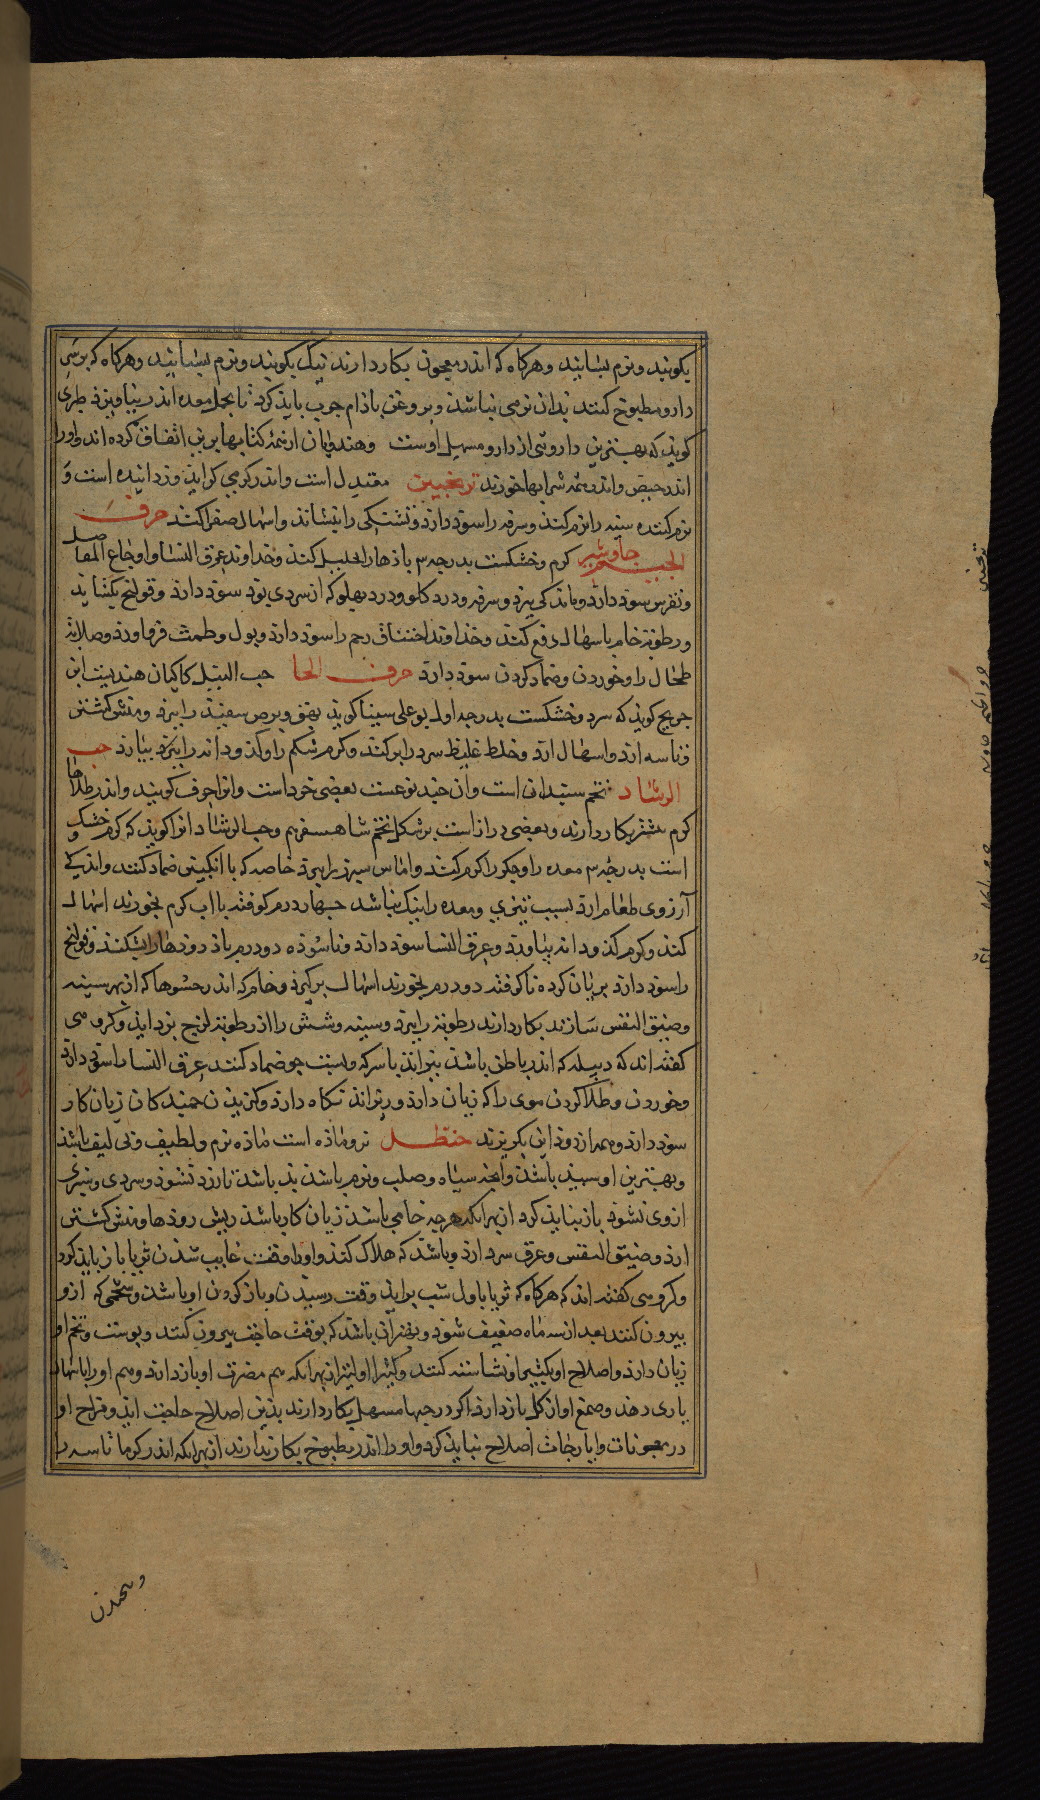 بکوبند ونرم بسایند وهرکاه که اندر معجون بکار دارند نیک بکوبند ونرم بسایند وهرکاه که برسَرِ
دارو مطبوخ کنند بدان نرمی نباشد وبروغن باذام چرب باید کرد تا بخمل معده اندر نیاویزد
کوید که بهترین داروئی از دارو مسهل اوست وهندیان اندر همهٔ کتابها برین اتفاق کرده اند واورا
اندر حیض واندر همه شرابها خورند ترنجبین معتدل است واندر کرمی کراید وزدایَنده است وَ
نرم کننده سینه را نرم کند وسرفه را سود دارد وتشنکی را بنشاند واسهال صفرا کند حرف
الجیم جاوشیر کرم وخشکست بدرجه سم باذها را تحلیل کند وخداوند عرق النسا واوجاع المفاصل
ونقرس سود دارد وسرفه ودرد کلو ودرد پهلو که از سردی بود سود دارد وقولنج بکشاید
ورطوبة خام باسهال دفع کند وخداوند اختناق رحم را سود دارد وبول وطمث فرود اورد وصلابة
طحال را وخوردن وضماد کردن سود دارد حرف الحا حب النیل کاکیان هندیست ابن
جریح کوید که سرد وخشکست بدرجه اول بوعلی سینا کوید بهق وبرص سفید را ببرد ومنش کشتن
وتاسه ارد واسهال ارد وخلط غلیظ سرد را بر کند وکرم شکم را وکدو دانه را بیارد حب
الرشاد تخم سپندان است وان چند نوعست بعضی خرد است وانرا حرف کویند واندر طلاها
کرم بکار دارند وبعضی دراز است بر شکل تخم شاهسفرم وحب الرشاد انرا کویند که کرم وخشک
است بدرجه سم معده را وجکر را کرم کند واماس سپرز را ببرد خاصه که با انکبین ضماد کنند واندکی
آرزوی طعام ارد بسبب تیزی ومعده را نیک نباشد چهار درم کوفته با آب کرم بخورند اسهال
کند وکرم کدو دانه بیاورد وعرق النسا سود دارد وناسوده دو درم باد رودها را بشکند وقولنج
را سود دارد بریان کرده ناکوفته دو درم بخورند اسهال برکیرد وخام که اندر حسوها که از بهر سینه
وضیق النفس سازند بکار دارند رطوبة را ببرد وسینه وشش را از رطوبة لزج بزداید وکروهی
کفته اند که دبیله که اندر باطن باشد بپزاند با سرکه وپست جو ضماد کنند عرق النسا را سود دارد
وخوردن وطلا کردن موی را که زیان دارد وریزاند نکاه دارد وکزیدن کان زیان کار
سود دارد وهمه از دود این بکریزند حنظل نر وماده است ماده نرم ولطیف ونر لیف باشد
وبهترین او سپید باشد وانچه سیاه وصلب ونرم باشد بد باشد تا زرد نشود وسردی وسبزی
ازوی نشود باز نباید کرد از بهر انکه هرچه خامی باشد زیان کار باشد ریش رودها ومنش کشتن
ارد وضیق النفس وعرق سرد ارد وباشد که هلاک کند واورا وقت غایب شدن ثریا باز باید کرد
وکروهی کفته اند که هرکاه که ثریا باول شب براید وقت رسیدن وباز کردن او باشد وشحمی که ازو
بیرون کنند بعد از سه ماه ضعیف شود وبهتر آن باشد که بوقت حاجت بیرون کنند وپوست وتخم او
زیان دارد واصلاح او بکتیرا ونشاسته کنند وکتیرا اولیتر از بهر انکه هم مضرت او باز دارد وهم اورا باسهال
یاری دهد وصمغ او از کل باز دارد اکر در حبها مسهل بکار دارند بدین اصلاح حاجت اید وقراح او
در معجونات وایارجات اصلاح نباید کرد واو را اندر مطبوخ بکار ندارند از بهر انکه اندر کرما تاسه